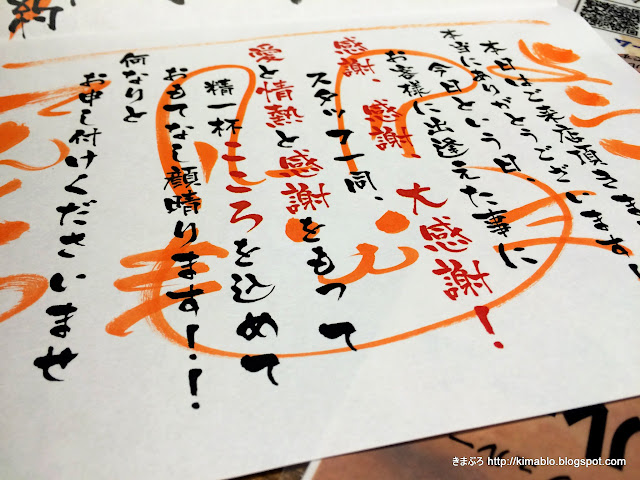 本日はご来店頂きま
本当にありがとうございます!
今日という日
お客様に出逢えた事に
感謝、感謝、大感謝!
スタッフ一同、
愛と情熱と感謝をもって
精一杯こころを込めて
おもてなし顔晴ります!!
何なりと
お申し付けくださいませ
きまぶろ http://kimablo.blogspot.com